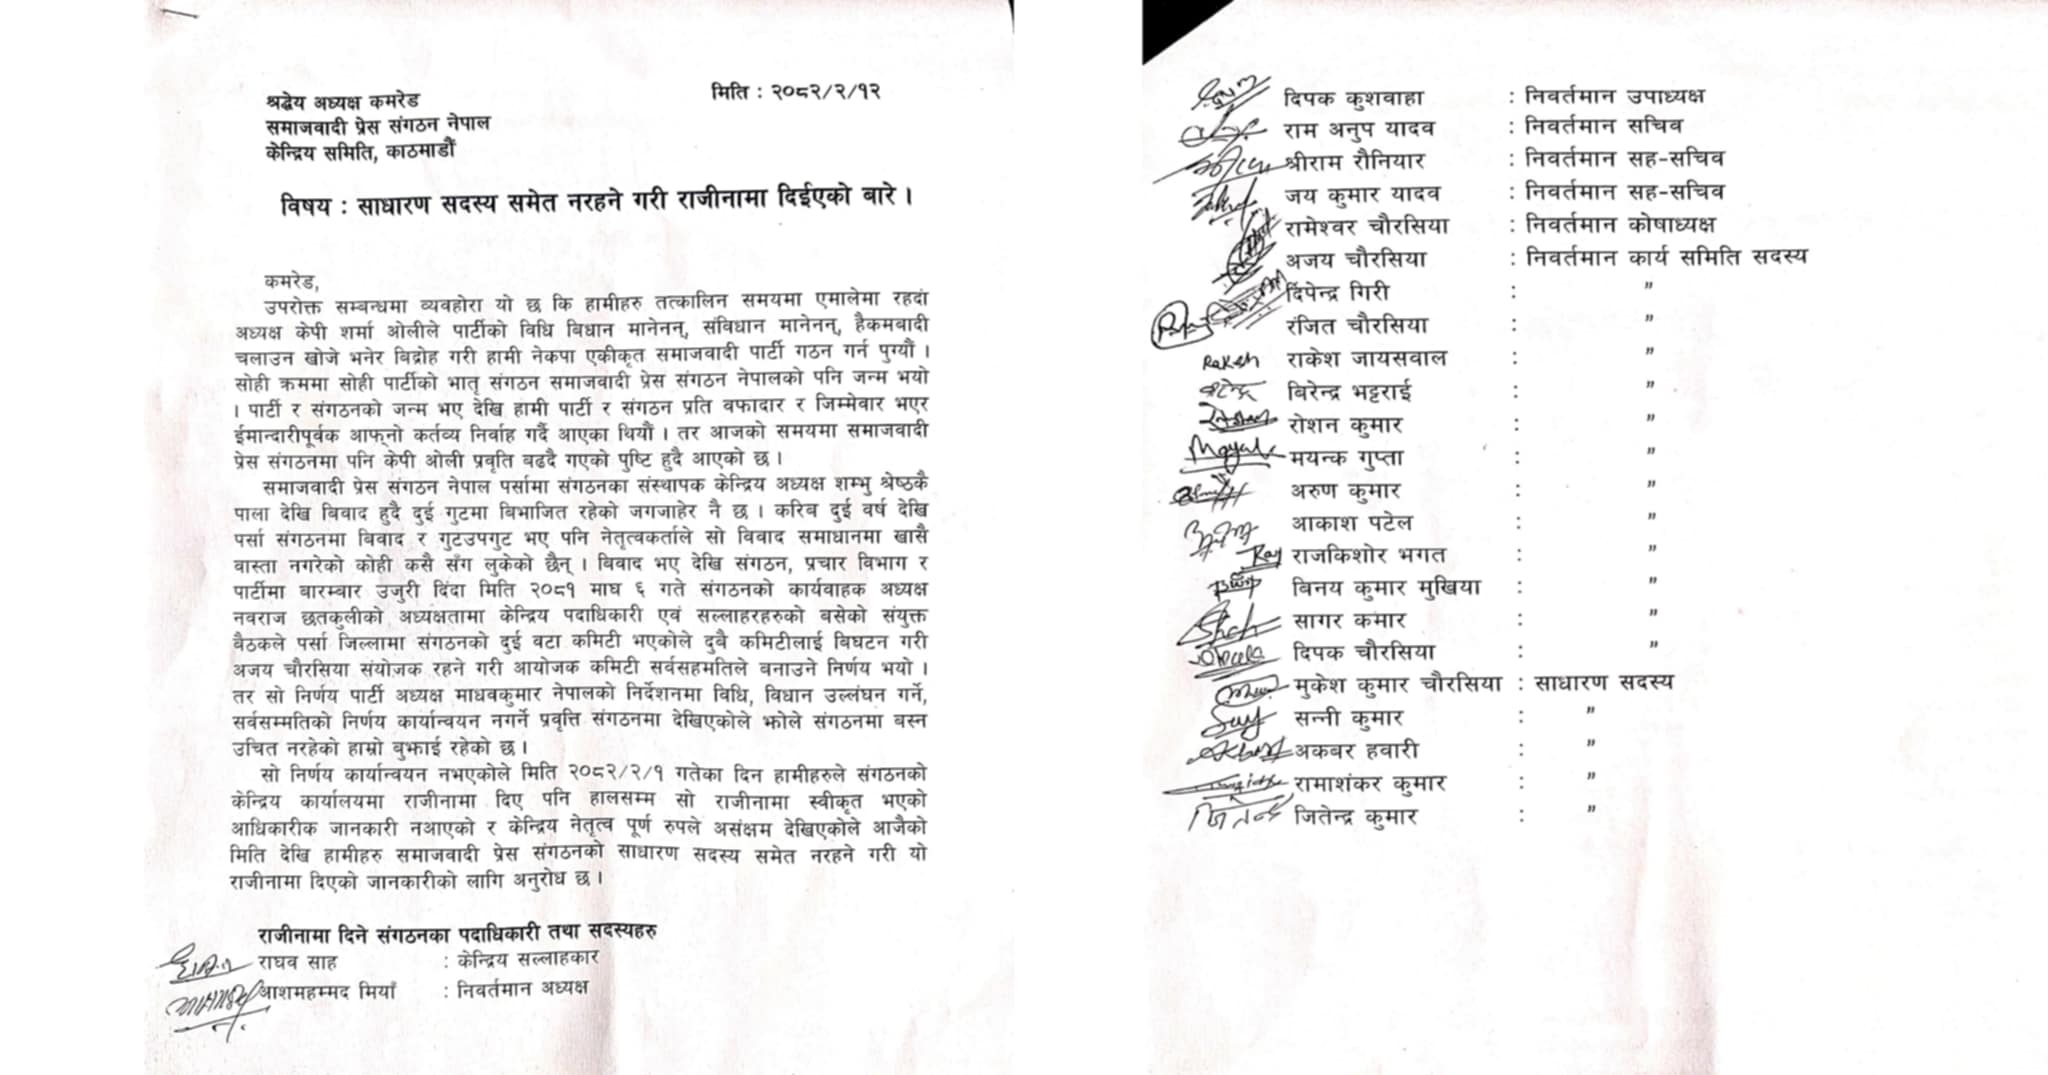 मिति : २०८२/२/१२
श्रद्धेय अध्यक्ष कमरेड
समाजवादी प्रेस संगठन नेपाल
केन्द्रिय समिति, काठमाडौं
विषय : साधारण सदस्य समेत नरहने गरी राजीनामा दिईएको बारे ।
कमरेड,
उपरोक्त सम्बन्धमा व्यवहोरा यो छ कि हामीहरु तत्कालिन समयमा एमालेमा रहदां
अध्यक्ष केपी शर्मा ओलीले पार्टीको विधि बिधान मानेनन्, संविधान मानेनन्, हैकमबादी
चलाउन खोजे भनेर बिद्रोह गरी हामी नेकपा एकीकृत समाजवादी पार्टी गठन गर्न पुग्यौं ।
सोही क्रममा सोही पार्टीको भातृ संगठन समाजवादी प्रेस संगठन नेपालको पनि जन्म भयो
। पार्टी र संगठनको जन्म भए देखि हामी पार्टी र संगठन प्रति वफादार र जिम्मेवार भएर
ईमान्दारीपूर्वक आफ्नो कर्तव्य निर्वाह गर्दै आएका थियौं । तर आजको समयमा समाजवादी
प्रेस संगठनमा पनि केपी ओली प्रवृति बढदै गएको पुष्टि हुदै आएको छ ।
समाजवादी प्रेस संगठन नेपाल पर्सामा संगठनका संस्थापक केन्द्रिय अध्यक्ष शम्भु श्रेष्ठकै
पाला देखि बिवाद हुदै दुई गुटमा बिभाजित रहेको जगजाहेर नै छ । करिब दुई वर्ष देखि
पर्सा संगठनमा बिवाद र गुटउपगुट भए पनि नेतृत्वकर्ताले सो विवाद समाधानमा खासै
वास्ता नगरेको कोही कसै सँग लुकेको छैन् । बिवाद भए देखि संगठन, प्रचार विभाग र
पार्टीमा बारम्बार उजुरी दिंदा मिति २०८१ माघ ६ गते संगठनको कार्यवाहक अध्यक्ष
नवराज छतकुलीको अध्यक्षतामा केन्द्रिय पदाधिकारी एवं सल्लाहरहरुको बसेको संयुक्त
बैठकले पर्सा जिल्लामा संगठनको दुई वटा कमिटी भएकोले दुबै कमिटीलाई बिघटन गरी
अजय चौरसिया संयोजक रहने गरी आयोजक कमिटी सर्वसहमतिले बनाउने निर्णय भयो ।
तर सो निर्णय पार्टी अध्यक्ष माधवकुमार नेपालको निर्देशनमा विधि, विधान उल्लंघन गर्ने,
सर्वसम्मतिको निर्णय कार्यान्वयन नगर्ने प्रवृत्ति संगठनमा देखिएकोले झोले संगठनमा बस्न
उचित नरहेको हाम्रो बुझाई रहेको छ ।
सो निर्णय कार्यान्वयन नभएकोले मिति २०८२/२/१ गतेका दिन हामीहरुले संगठनको
केन्द्रिय कार्यालयमा राजीनामा दिए पनि हालसम्म सो राजीनामा स्वीकृत भएको
आधिकारीक जानकारी नआएको र केन्द्रिय नेतृत्व पूर्ण रुपले असंक्षम देखिएकोले आजैको
मिति देखि हामीहरु समाजवादी प्रेस संगठनको साधारण सदस्य समेत नरहने गरी यो
राजीनामा दिएको जानकारीको लागि अनुरोध छ ।
राजीनामा दिने संगठनका पदाधिकारी तथा सदस्यहरु
राघव साह : केन्द्रिय सल्लाहकार
आशमहम्मद मियाँ : निवर्तमान अध्यक्ष
दिपक कुशवाहा : निवर्तमान उपाध्यक्ष
राम अनुप यादव : निवर्तमान सचिव
श्रीराम रौनियार : निवर्तमान सह-सचिव
जय कुमार यादव : निवर्तमान सह-सचिव
रामेश्वर चौरसिया : निवर्तमान कोषाध्यक्ष
अजय चौरसिया : निवर्तमान कार्य समिति सदस्य
दिपेन्द्र गिरी : ”
रंजित चौरसिया : ”
Rakesh राकेश जायसवाल : ”
बिरेन्द्र भट्टराई : ”
रोशन कुमार : ”
मयन्क गुप्ता : ”
अरुण कुमार : ”
आकाश पटेल : ”
Raj राजकिशोर भगत : ”
बिनय कुमार मुखिया : ”
सागर कमार : ”
दिपक चौरसिया : ”
मुकेश कुमार चौरसिया : साधारण सदस्य
सन्नी कुमार : ”
अकबर हवारी : ”
रामाशंकर कुमार : ”
जितेन्द्र कुमार : ”